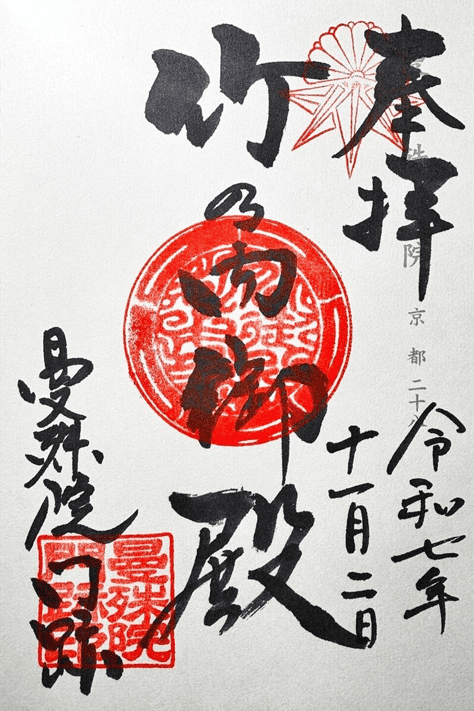 奉拝
殊院 京都二十八
令和七年
十一月二日
竹の内御殿
曼殊院門跡
曼殊院